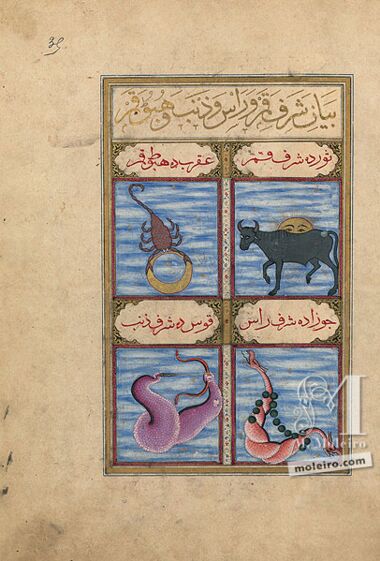 بيان شرف قمر و راس و ذنب و هبوط قمر
ثورده شرف قمر
عقرب ده هبوط قمر
جوزاده شرف راس
قوس ده شرف ذنب
M
M. Moleiro
moleiro.com